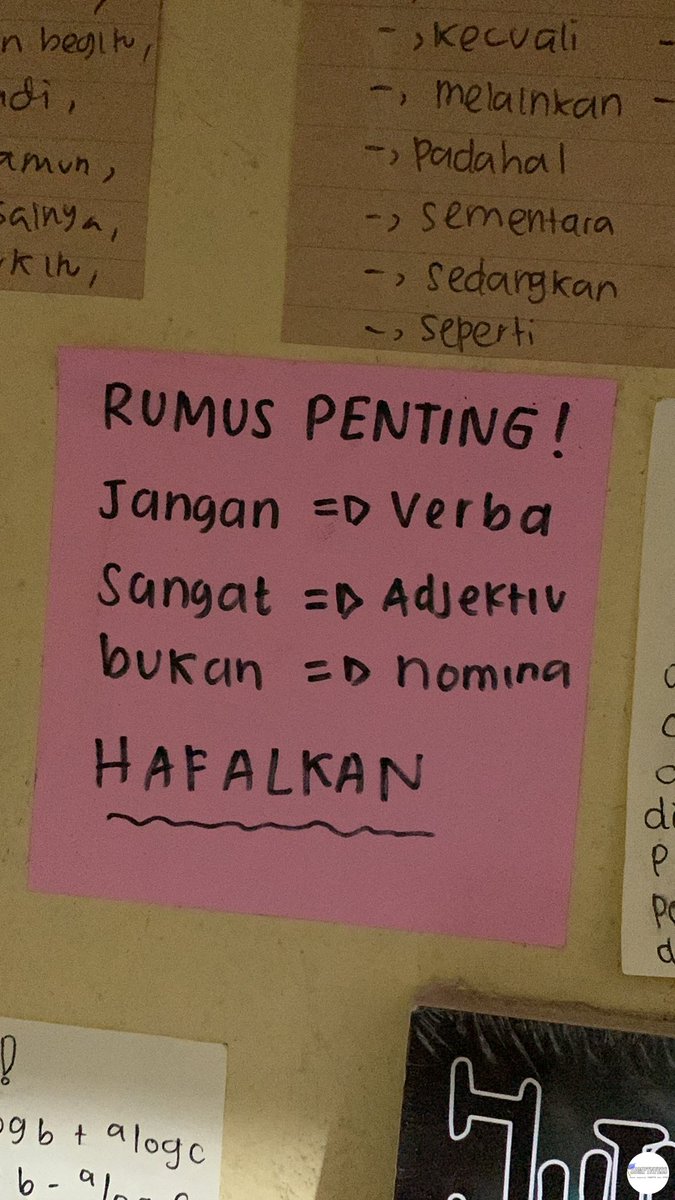 begitu,
- ,kecuali
-, melainkan -
-, padahal
-, sementara
-, sedangkan
-, seperti
RUMUS PENTING!
Jangan => Verba
Sangat => Adjektiv
bukan => nomina
HAFALKAN
+ ᵃlogc
b -